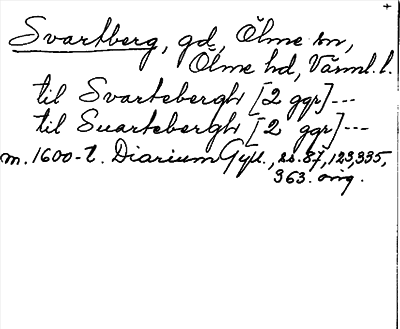 +
Svartberg, gd, Ölme sn,
Ölme hd, Värml. l.
til Svartebergh [2 ggr] ---
til Suartebergh [2 ggr] ---
m. 1600-t. Diarium Gyll., ss. 87, 123, 335,
363. orig.